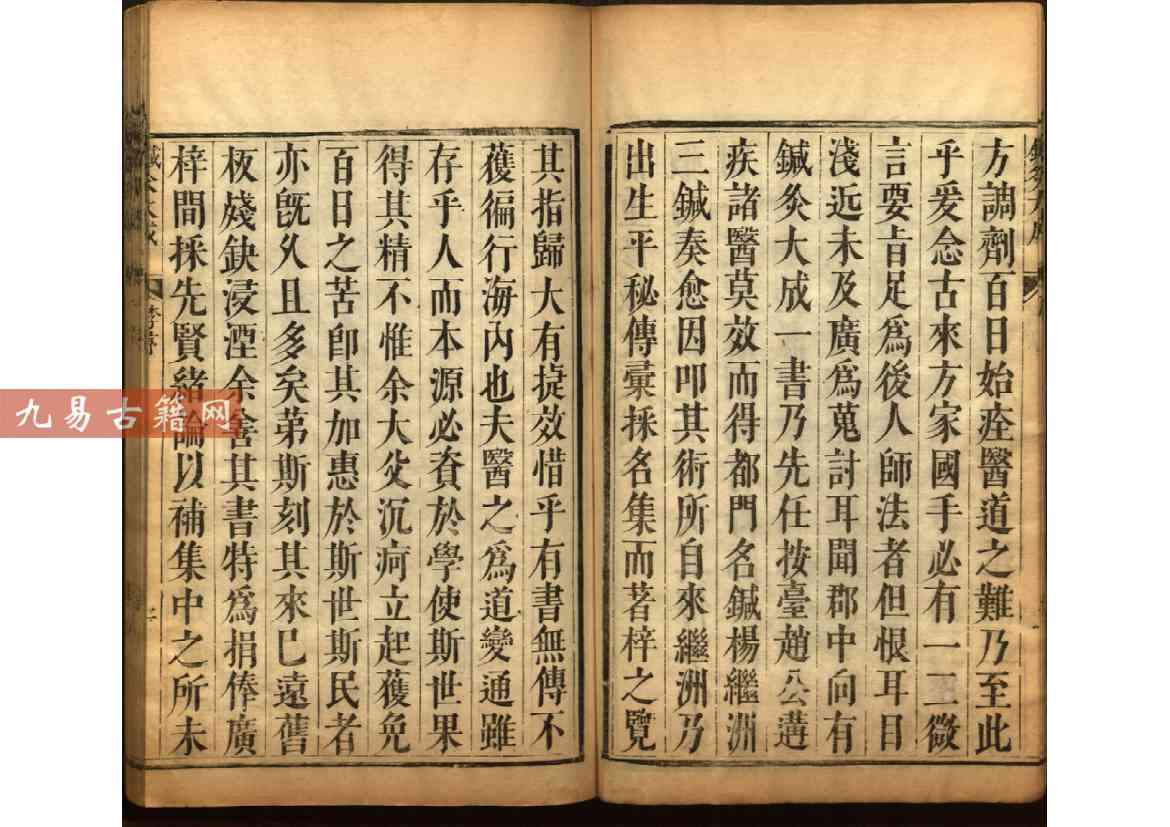 方調劑百日始痊醫道之難乃至此
乎爰念古來方家國手必有一二微
言要旨足爲後人師法者但恨耳目
淺近未及廣爲蒐討耳聞郡中向有
鍼灸大成一書乃先任按臺趙公遘
疾諸醫莫效而得都門名鍼楊繼洲
三鍼奏愈因叩其術所自來繼洲乃
出生平秘傳彙採名集而著梓之覽
其指歸大有㨗效惜乎有書無傳不
獲徧行海內也夫醫之爲道變通雖
存乎人而本源必資於學使斯世果
得其精不惟余大父沉疴立起獲免
百日之苦卽其加惠於斯世斯民者
亦旣久且多矣弟斯刻其來已遠舊
板殘缺浸湮余善其書特爲捐俸廣
梓間採先賢緒論以補集中之所未
鍼灸大成
九易古籍网